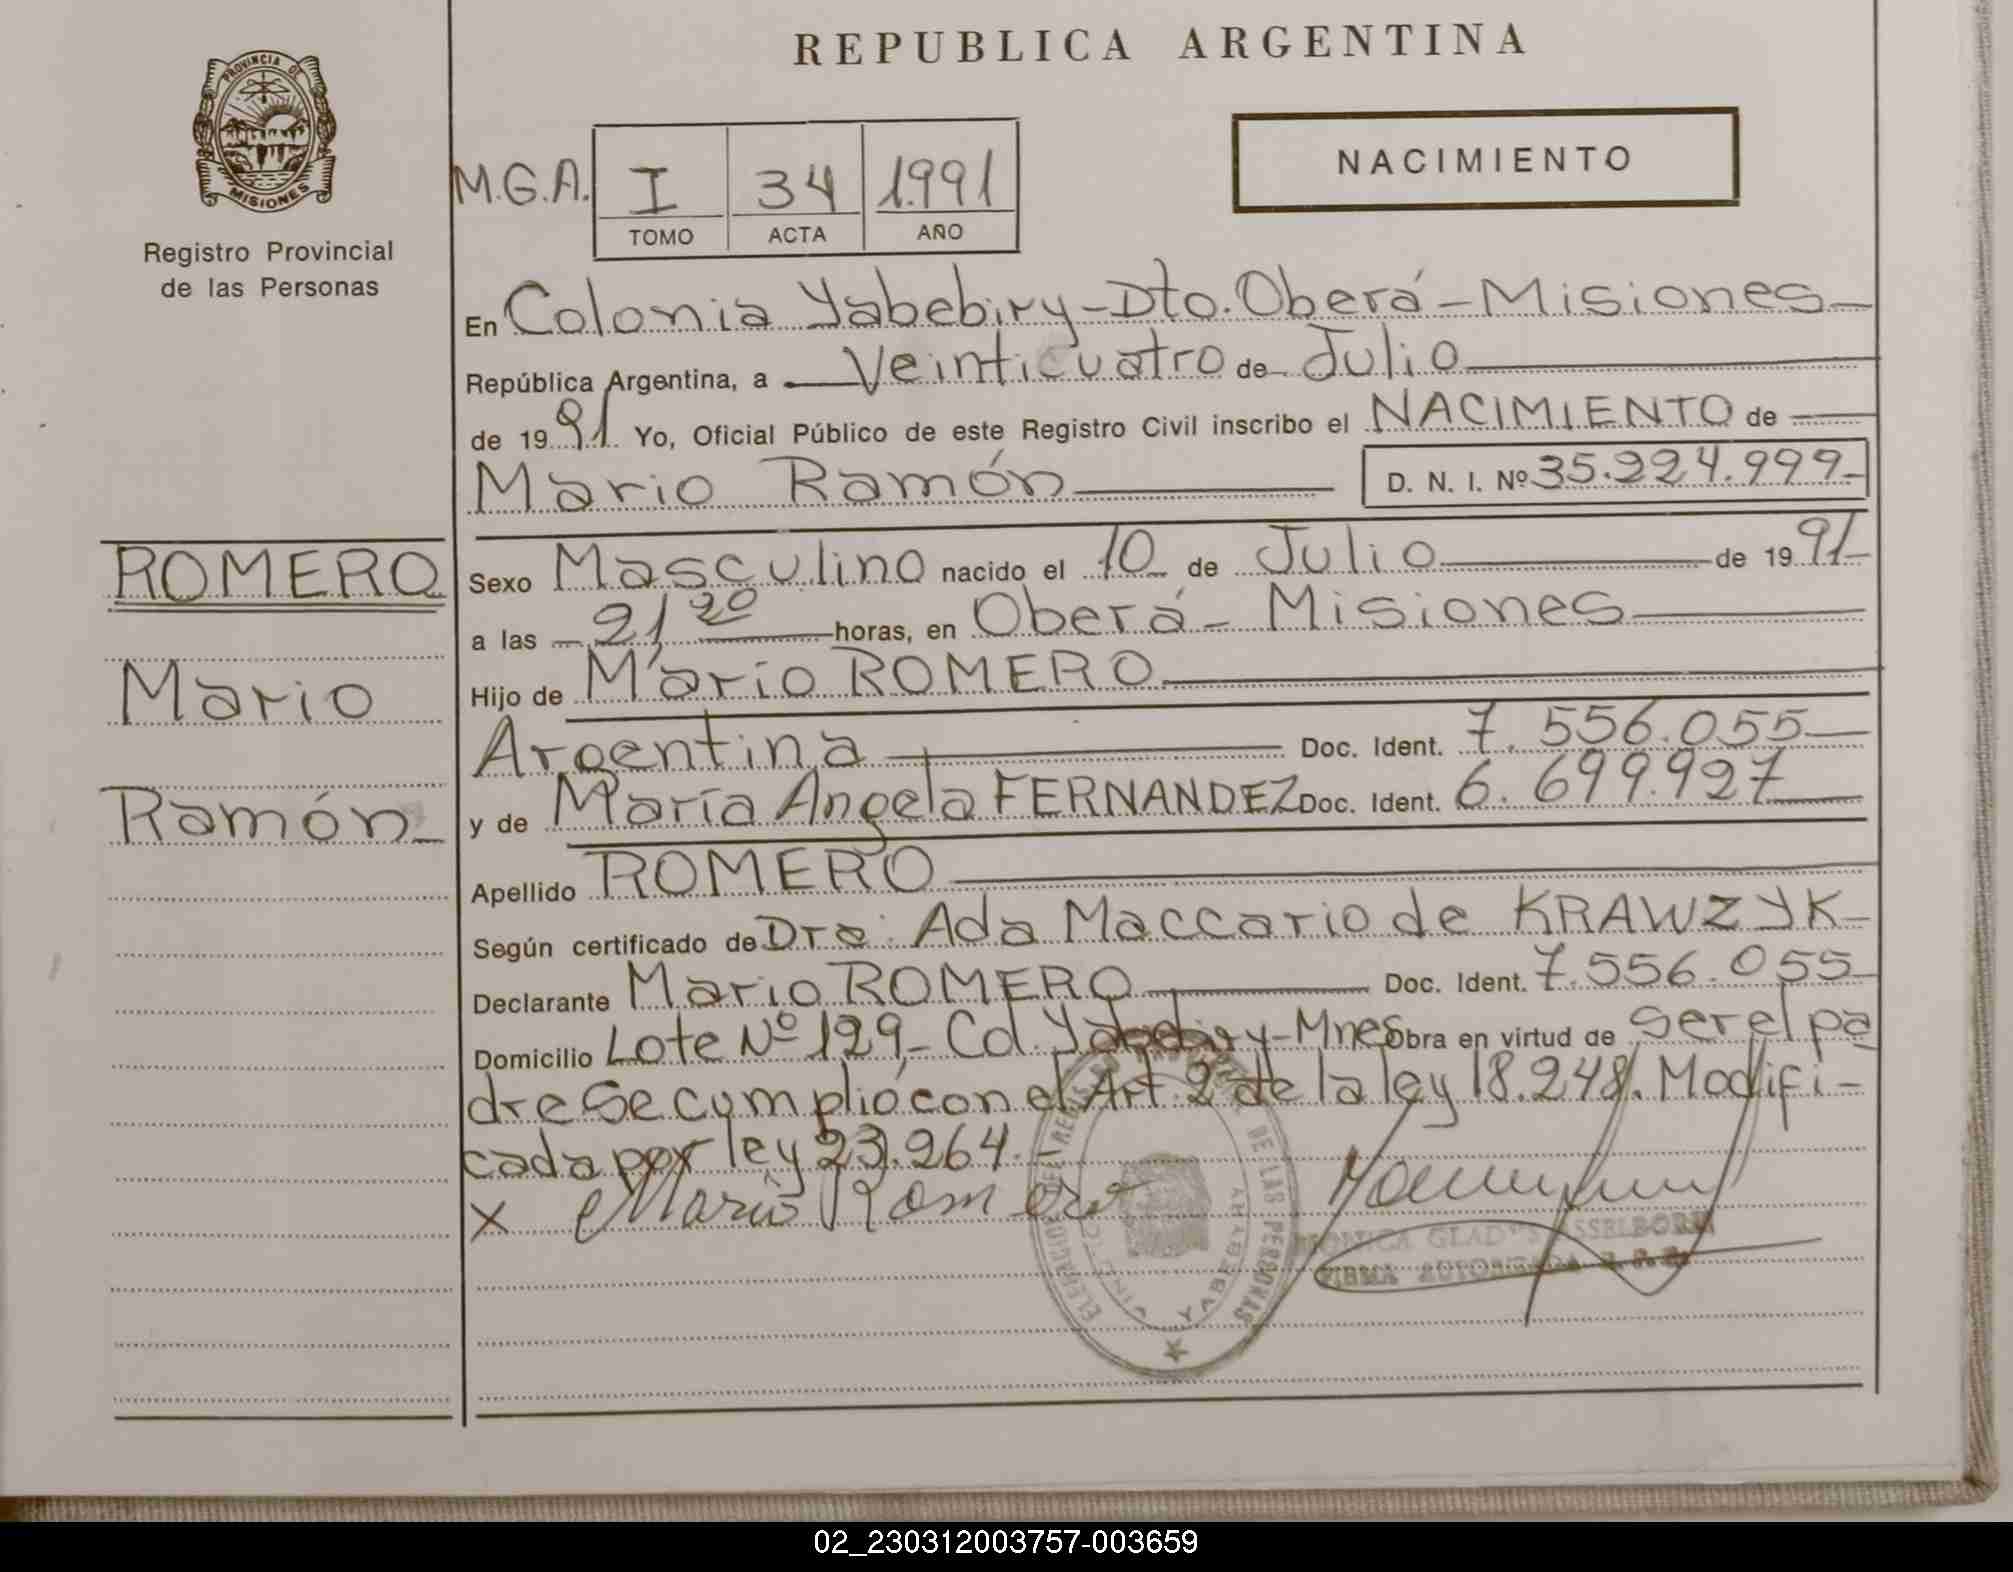 REPUBLICA ARGENTINA
PROVINCIA DE
MISIONES
Registro Provincial
de las Personas
NACIMIENTO
M.G.A. I 34 1991
TOMO ACTA AÑO
En Colonia Yabebiry-Dto. Oberá-Misiones
República Argentina, a Veinticuatro de Julio
de 1991. Yo, Oficial Público de este Registro Civil inscribo el NACIMIENTO de
Mario Ramón D. N. I. Nº 35.224.999-
ROMERO
Mario
Ramón-
Sexo Masculino nacido el 10 de Julio de 1991-
a las 21,20 horas, en Oberá- Misiones
Hijo de Mario ROMERO
Argentina Doc. Ident. 7.556.055
y de María Angela FERNANDEZ Doc. Ident. 6.699.927
Apellido ROMERO
Según certificado de Dra. Ada Maccario de KRAWZYK-
Declarante Mario ROMERO Doc. Ident. 7.556.055
Domicilio Lote Nº 129,- Col. Yabebiry-Mnes Obra en virtud de ser el pa
dre Se cumplió con el Art. 2 de la ley 18.248. Modifi-
cada por ley 23.264.-
x Mario Romero
DE LAS PERSONAS
YABEBI
FIRMA AUTORIZADA
02_230312003757-003659